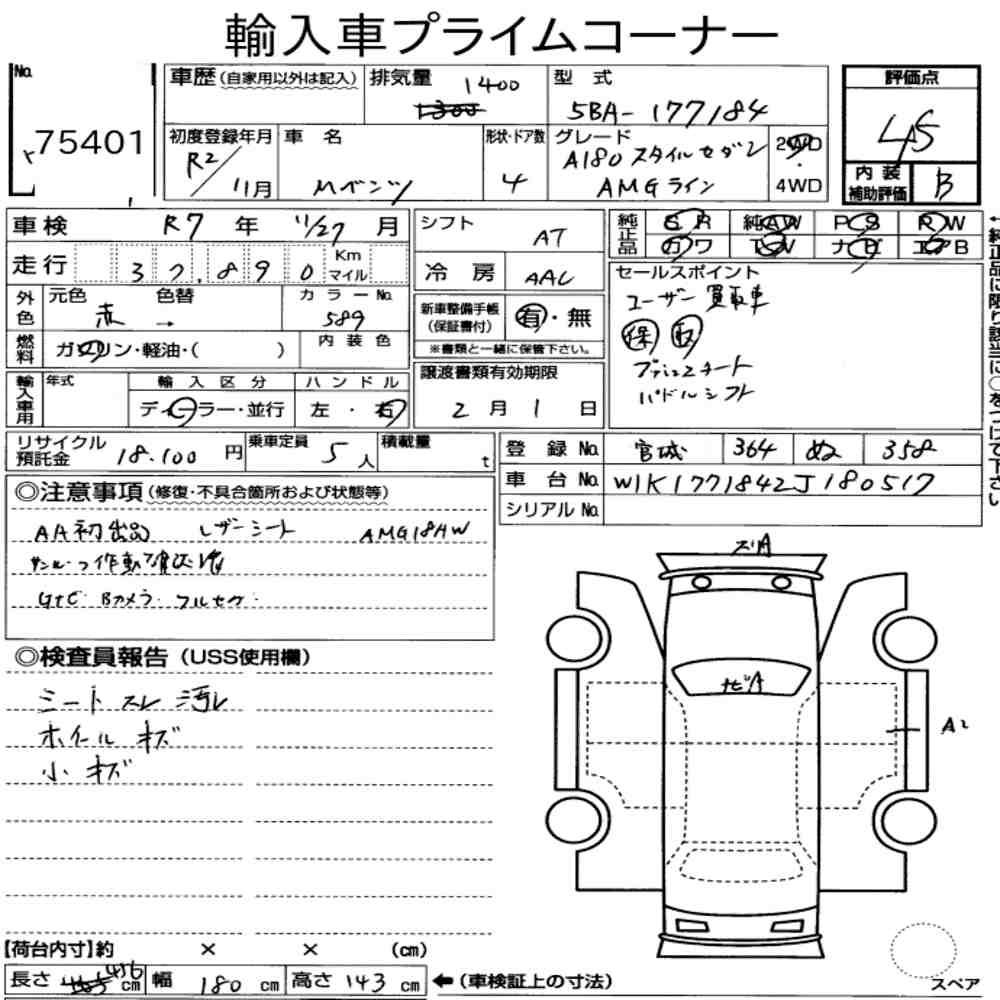 輸入車プライムコーナー
No. 75401
車歴(自家用以外は記入)
排気量 1400 1300
型式 5BA-177184
評価点 4.5
内装補助評価 B
初度登録年月 R2/11月
車名 Mベンツ
形状・ドア数 4
グレード A180 スタイル セダン
AMGライン
2WD
4WD
車検 R7年 11/27月
シフト AT
純正品 SR 純AW PS RW
カワ TV ナビ エアB
走行 37,890 Km マイル
冷房 AAC
セールスポイント
ユーザー買取車
保 取
プッシュスタート
パドルシフト
外色 元色 赤 色替 → カラーNo. 589
新車整備手帳(保証書付) 有・無
※書類と一緒に保管下さい。
燃料 ガソリン・軽油・( ) 内装色
譲渡書類有効期限
2月1日
輸入車用 年式 輸入区分 ハンドル
ディーラー・並行 左・右
←純正品に限り該当に○をつけて下さい
リサイクル預託金 18.100円
乗車定員 5人
積載量 t
登録No. 宮城 364 ぬ 358
車台No. W1K1771842J180517
シリアルNo.
◎注意事項(修復・不具合箇所および状態等)
AA初出品 レザーシート AMG18AW
サンルーフ作動確認済
ETC Bカメラ フルセグ
◎検査員報告(USS使用欄)
シート スレ 汚レ
ホイール キズ
小キズ
ズA
ナビA
A2
【荷台内寸】約 × × (cm)
長さ 456 cm 幅 180 cm 高さ 143 cm ←(車検証上の寸法)
スペア